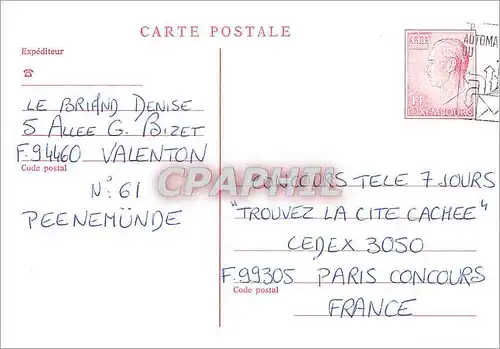 CARTE POSTALE
Expéditeur
LE BRIAND DENISE
5 ALLEE G. BIZET
F.94460 VALENTON
Code postal
N° 61
PEENEMÜNDE
LUXEMBOURG
AUTOMA
DU
CPAPHIL
CONCOURS TELE 7 JOURS
"TROUVEZ LA CITE CACHEE"
CEDEX 3050
F.99305 PARIS CONCOURS
Code postal
FRANCE